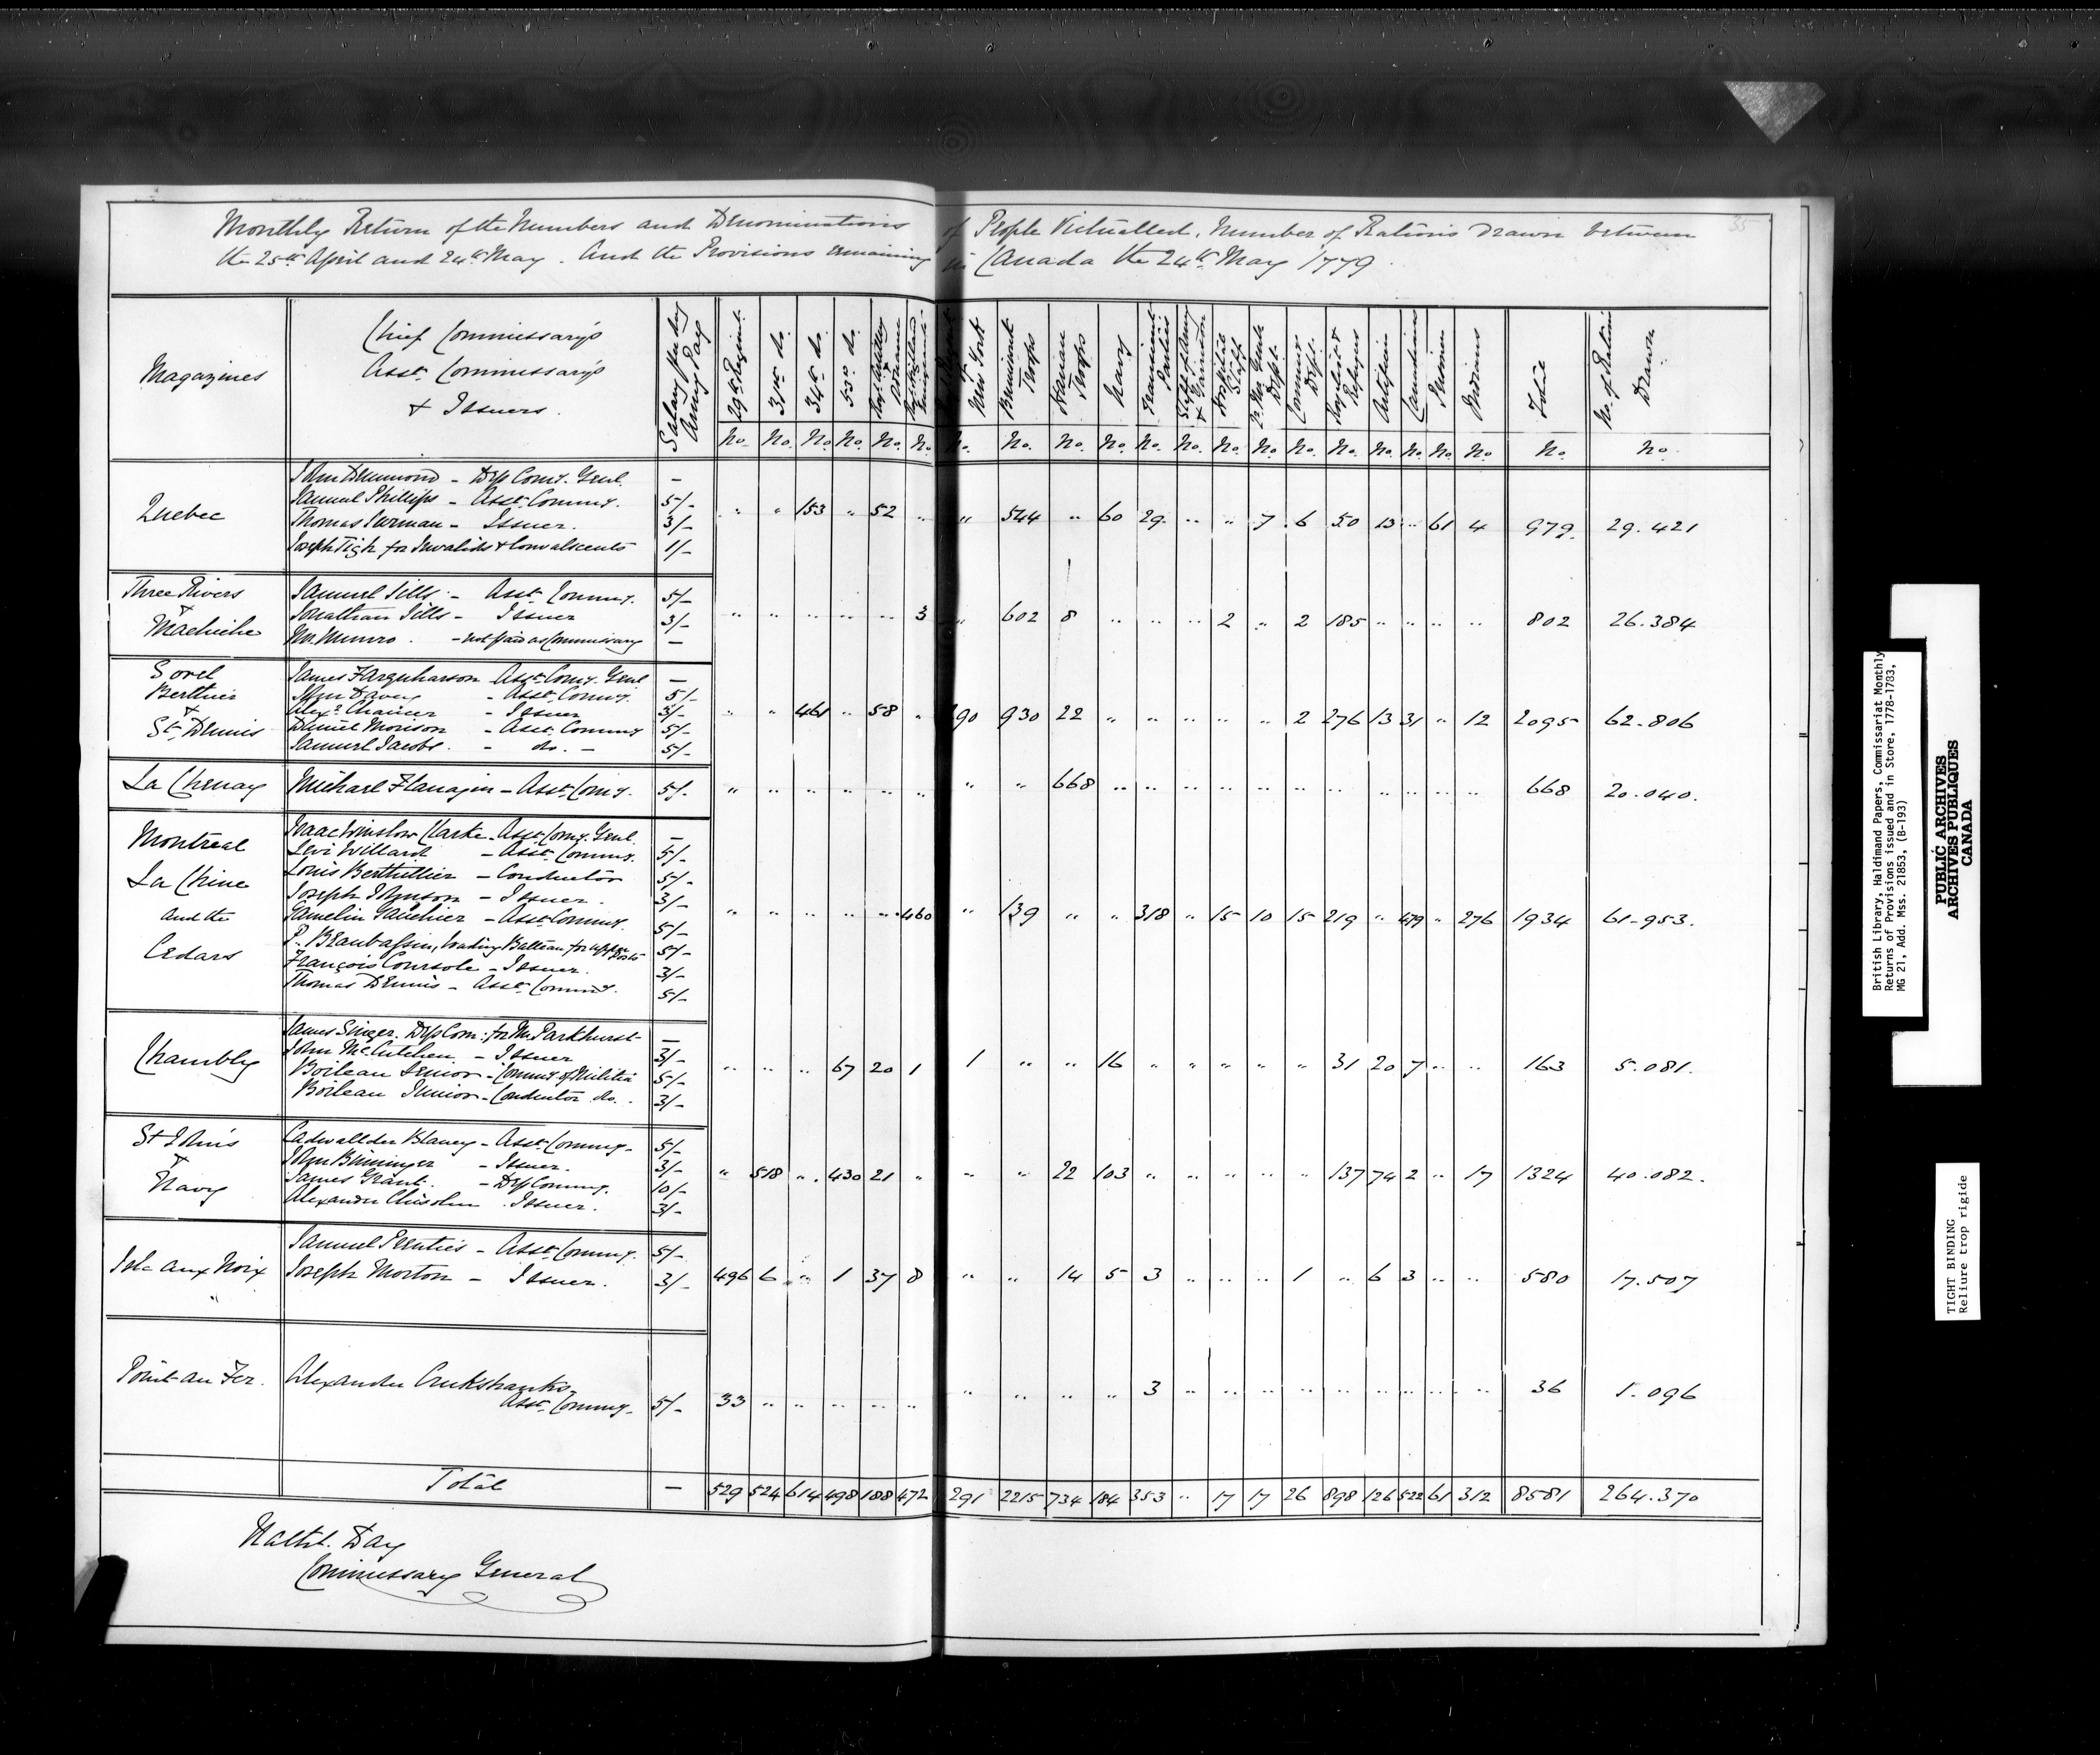 35
Monthly Return of the Numbers and Denominations of People Victualled, Number of Rations Drawn between
the 25th April and 24th May. And the Provisions remaining in Canada the 24th May 1779.
Magazines | Chief Commissary's Asst. Commissary's & Issuers. | Salary Army Pay | 29th Regiment. | 31st do. | 34th do. | 53d do. | Royl. Artillery | Emigrants | New York | Brunswick Troops | Hanau Troops | Navy | Transient Parties | Staff of Army & Garrison | Hospital Staff | Qr. Mr. Genls Dept. | Commiss Dept. | Royalists & Refugees | Artificers | Canadians | Prisoners | Indians | Total | No. of Rations Drawn
No. No. No. No. No. No. No. No. No. No. No. No. No. No. No. No. No. No. No. No. No. No.
Quebec
John Drummond - Dep Comy. Genl. -
Samuel Phillips - Asst. Commy. 5/-
Thomas Surman - Issuer. 3/-
Joseph Tigh for Invalids & Convalescents 1/-
" " 153 " 52 " " 544 " 60 29 " " 7 6 50 13 " 61 4 979. 29.421
Three Rivers & Machiche
Samuel Sills - Asst. Commy. 5/-
Jonathan Sills - Issuer 3/-
Mr. Munro. - not paid as Commissary -
" " " " " 3 " 602 8 " " " 2 " 2 185 " " " " 802 26.384
Sorel Berthier & St. Dennis
James Farquharson - Asst. Comy. Genl -
John Davey - Asst. Commy. 5/-
Alexr. Chaucer - Issuer 3/-
Daniel Morison - Asst. Commy 5/-
Samuel Jacobs. - do. - 5/-
" " 461 " 58 " 290 930 22 " " " " " 2 276 13 31 " 12 2095 62.806
La Chenay
Michael Flanagin - Asst. Comy. 5/-
" " " " " " " " 668 " " " " " " " " " " " 668 20.040.
Montreal La Chine and the Cedars
Isaac Winslow Clarke - Asst. Comy. Genl. -
Levi Willard - Asst. Commy. 5/-
Louis Berthillier - Conductor 5/-
Joseph Johnson - Issuer. 3/-
Gamelin Gauchier - Asst. Commy. 5/-
P. Beaubassin, loading Batteau for upper Posts 5/-
François Coursole - Issuer. 3/-
Thomas Dennis - Asst. Commy. 5/-
" " " " " 460 " 139 " " 318 " 15 10 15 219 " 479 " 276 1934 61.953.
Chambly
James Singer. Dep Com: for Mr. Parkhurst -
John McCutchen. - Issuer 3/-
Boileau Senior - Commy of Militia 5/-
Boileau Junior - Conductor do. 3/-
" " " 67 20 1 1 " " 16 " " " " " 31 20 7 " " 163 5.081.
St. Johns & Navy
Cadwallder Blaney - Asst. Commy - 5/-
John Bininger - Issuer. 3/-
James Grant. - Dep Commy. 10/-
Alexander Chisolm. Issuer. 3/-
" 518 " 430 21 " " " 22 103 " " " " " 137 74 2 " 17 1324 40.082.
Isle aux Noix
Samuel Prenties - Asst. Commy. 5/-
Joseph Morton - Issuer. 3/-
496 6 " 1 37 8 " " 14 5 3 " " " 1 " 6 3 " " 580 17.507
Point au Fer.
Alexander Cruikshanks -
Asst. Commy - 5/-
33 " " " " " " " " " 3 " " " " " " " " " 36 1.096
Total - 529 524 614 498 188 472 291 2215 734 184 353 " 17 17 26 898 126 522 61 312 8581 264.370
Nathl. Day
Commissary General
British Library, Haldimand Papers, Commissariat Monthly
Returns of Provisions issued and in Store, 1778-1783,
MG 21, Add. Mss. 21853, (B-193)
PUBLIC ARCHIVES
ARCHIVES PUBLIQUES
CANADA
TIGHT BINDING
Reliure trop rigide